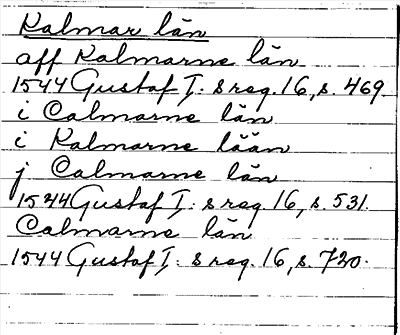 Kalmar län
aff Kalmarne län
1544 Gustaf I: s reg. 16, s. 469.
i Calmarne län
i Kalmarne lään
j Calmarne län
1544 Gustaf I: s reg. 16, s. 531.
Calmarne län
1544 Gustaf I: s reg. 16, s. 720.